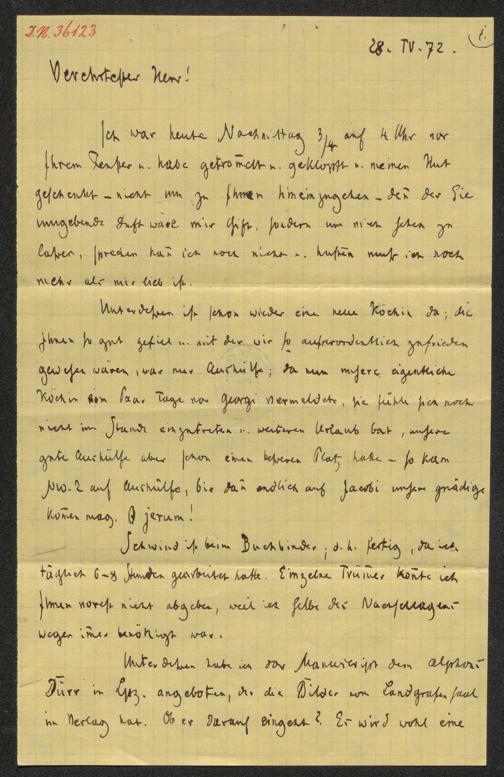 I.N. 36123
1.
28. IV. 72.
Verehrtester Herr!
Ich war heute Nachmittag 3/4 auf 4 Uhr vor
Ihrem Fenster u. habe getrom̄elt u. geklopft u. meinen Hut
geschenkt – nicht um zu Ihnen hineinzugehen – den̄ der Sie
umgebende Duft wäre mir Gift, sondern um mich sehen zu
lassen, sprechen kan̄ ich noch nicht u. husten muß ich noch
mehr als mir lieb ist.
Unterdessen ist schon wieder eine neue Köchin da; die
Ihnen so gut gefiel u. mit der wir so außerordentlich zufrieden
gewesen wären, war nur Aushülfe; da nun unsere eigentliche
Köchin ein Paar Tage vor Georgi vermeldete, sie fühle sich noch
nicht im Stande einzutreten u. weiteren Urlaub bat, unsere
gute Aushülfe aber schon einen besseren Platz hatte – so kam
No. 2 auf Aushülfe, bis dan̄ endlich auf Jacobi unsere gnädige
kom̄en mag. O jerum!
Schwind ist beim Buchbinder; d. h. fertig, da ich
täglich 6–8 Stunden gearbeitet hatte. Einzelne Trüm̄er kon̄te ich
Ihnen vorerst nicht abgeben, weil ich selbe des Nachschlagens
wegen im̄er benöthigt war.
Unterdessen habe ich das Manuscript dem Alphons
Dürr in Lpz. angeboten, der die Bilder vom Landgrafensaal
im Verlag hat. Ob er darauf eingeht? Es wird wohl eine